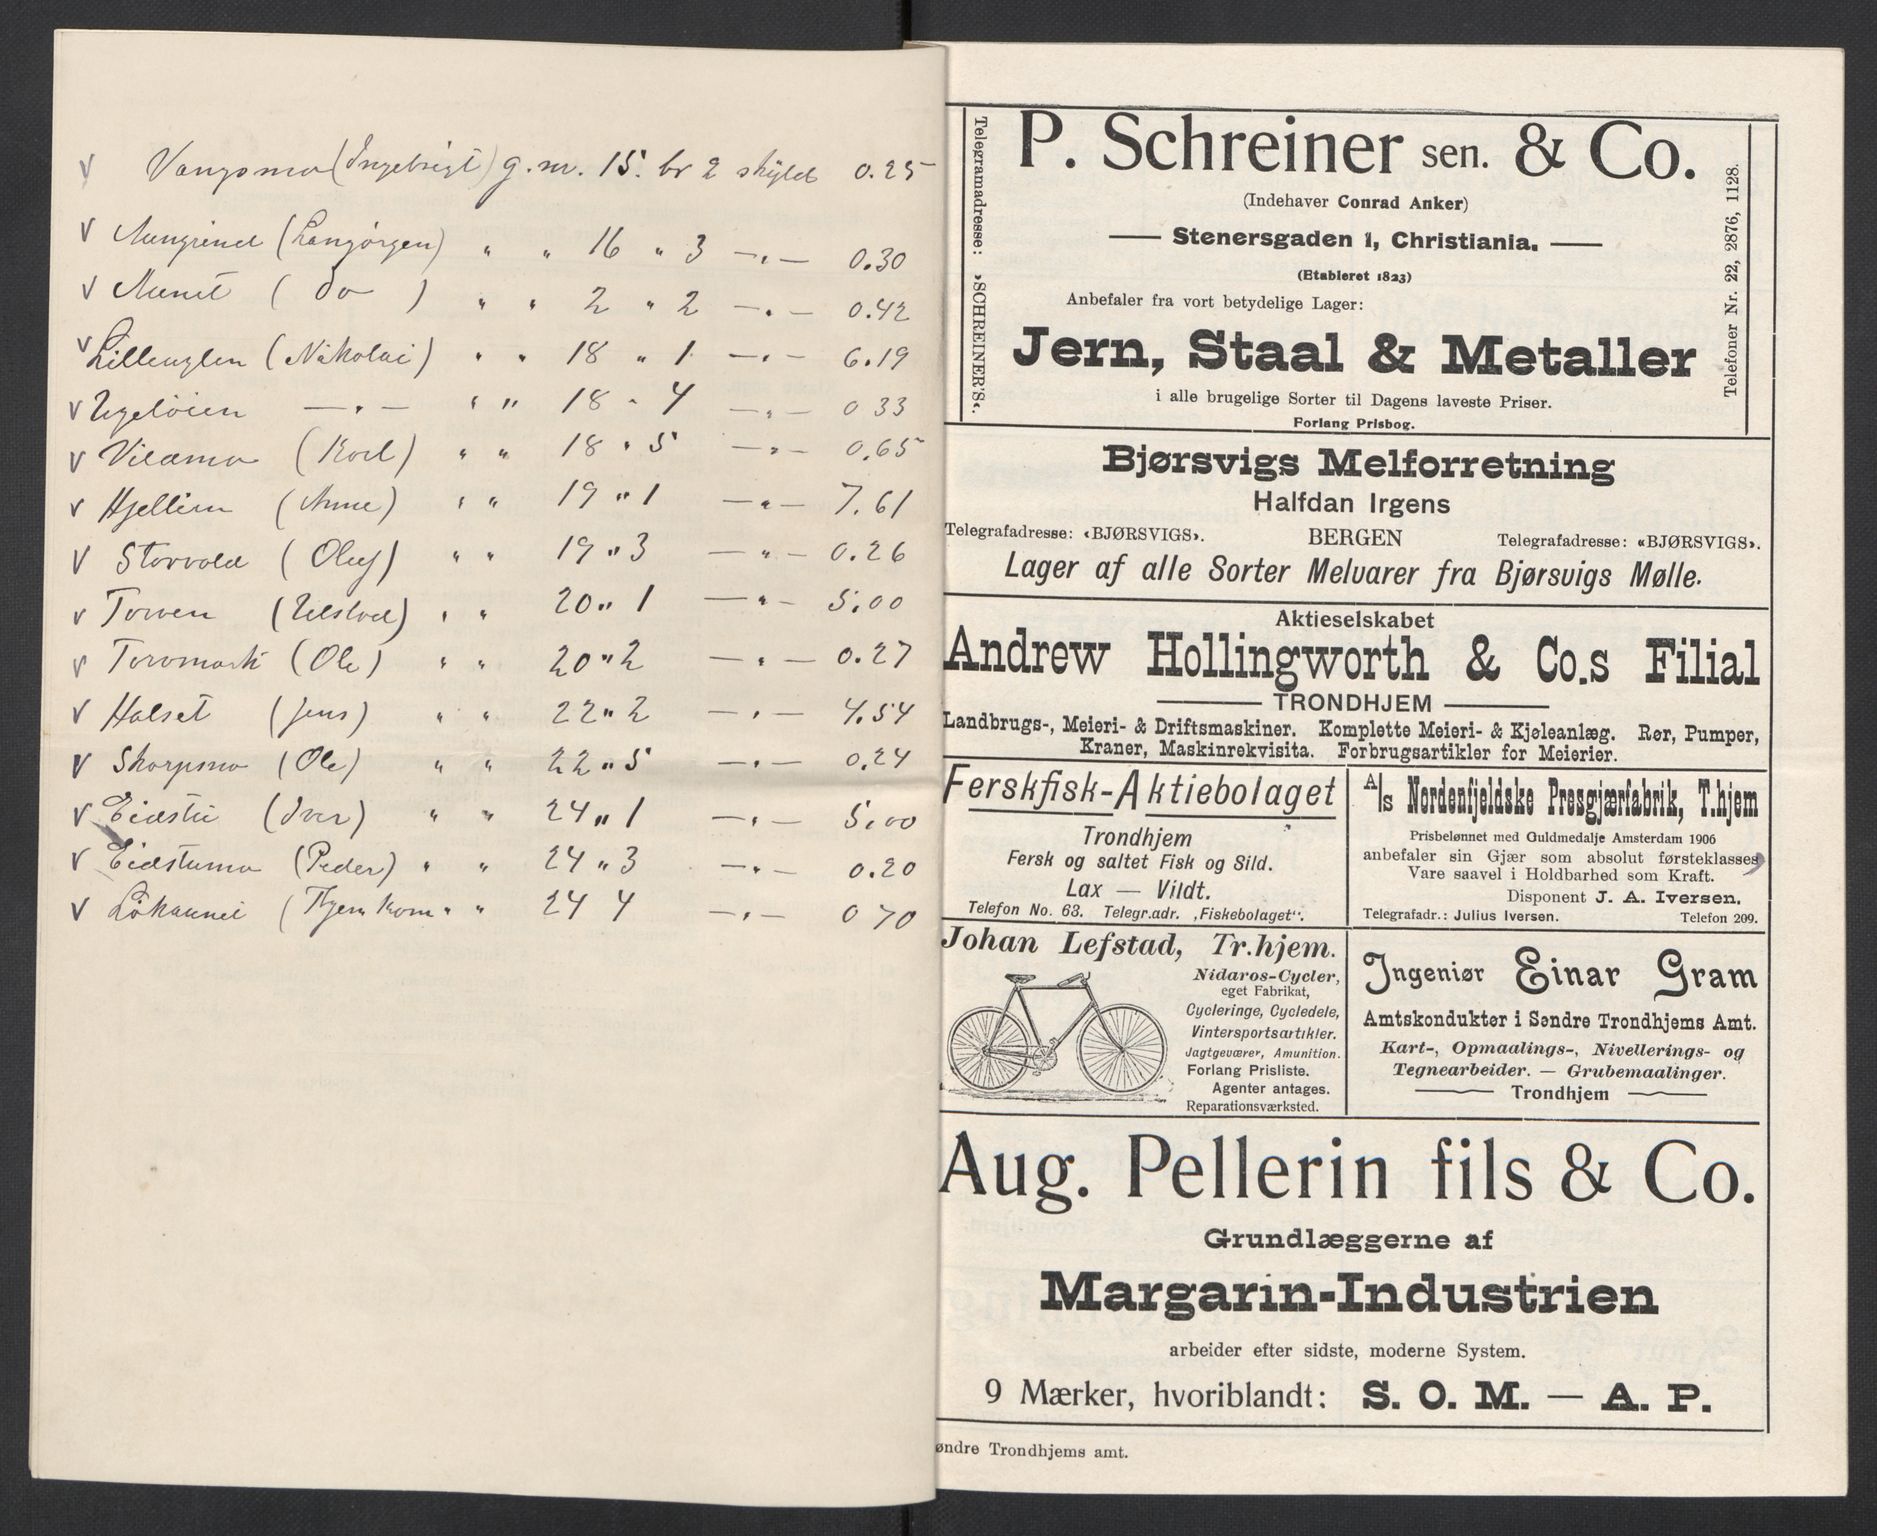 v Vangsmo (Ingebrigt) g. nr. 15. br 2 skyld 0.25
v Aungrind (Langørgen) " " 16 " 3 —"— 0.30
v Aunet ( do ) " " 2 " 2 —"— 0.42
v Lilleuglen (Nikolai) " " 18 " 1 —"— 6.19
v Ugleøien —"— " " 18 - 4 —"— 0 33
v Vildmo (Karl) " " 18 " 5 —"— 0.65
v Hjelliem (Arne) " " 19 " 1 —"— 7.61
v Storvold (Oluf) " " 19 " 3 —"— 0.26
v Torven " " 20 " 1 —"— 5.00
v Toromark (Ole) " " 20 " 2 —"— 0.27
v Halset (Jens) " " 22 " 2 —"— 4.54
v Skarpsmo (Ole) " " 22 " 5 —"— 0.24
v Eidstu (Iver) " " 24 " 1 —"— 5.00
v Eidstumo (Peder) " " 24 " 3 —"— 0.20
v Løkaunet (Hjemkom " " 24 4 —"— 0 70
Telegramadresse: »SCHREINER'S«.
P. Schreiner sen. & Co.
(Indehaver Conrad Anker)
— Stenersgaden 1, Christiania. —
(Etableret 1823)
Anbefaler fra vort betydelige Lager:
Jern, Staal & Metaller
i alle brugelige Sorter til Dagens laveste Priser.
Forlang Prisbog.
Telefoner Nr. 22, 2876, 1128.
Bjørsvigs Melforretning
Halfdan Irgens
Telegrafadresse: «BJØRSVIGS». BERGEN Telegrafadresse: «BJØRSVIGS».
Lager af alle Sorter Melvarer fra Bjørsvigs Mølle.
Aktieselskabet
Andrew Hollingworth & Co.s Filial
— TRONDHJEM —
Landbrugs-, Meieri- & Driftsmaskiner. Komplette Meieri- & Kjøleanlæg. Rør, Pumper,
Kraner, Maskinrekvisita. Forbrugsartikler for Meierier.
Ferskfisk-Aktiebolaget
Trondhjem
Fersk og saltet Fisk og Sild.
Lax — Vildt.
Telefon No. 63. Telegr.adr. „Fiskebolaget“.
A/s Nordenfjeldske Presgjærfabrik, T.hjem
Prisbelønnet med Guldmedalje Amsterdam 1906
anbefaler sin Gjær som absolut førsteklasses
Vare saavel i Holdbarhed som Kraft.
Disponent J. A. Iversen.
Telegrafadr.: Julius Iversen. Telefon 209.
Johan Lefstad, Tr.hjem.
Nidaros-Cycler,
eget Fabrikat,
Cycleringe, Cycledele,
Vintersportsartikler.
Jagtgeværer, Amunition.
Forlang Prisliste.
Agenter antages.
Reparationsværksted.
Ingeniør Einar Gram
Amtskonduktør i Søndre Trondhjems Amt.
Kart-, Opmaalings-, Nivellerings- og
Tegnearbeider. — Grubemaalinger.
— Trondhjem —
Aug. Pellerin fils & Co.
Grundlæggerne af
Margarin-Industrien
arbeider efter sidste, moderne System.
9 Mærker, hvoriblandt: S. O. M. — A. P.
øndre Trondhjems amt.